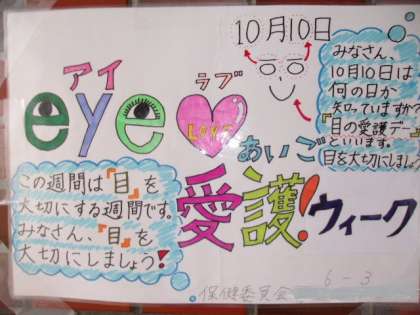 10月10日
みなさん、
10月10日は
何の日か
知っていますか?
『目の愛護デー』
といいます。
目を大切にしましょう
アイ ラブ
eye LOVE
あいご
愛護!ウィーク
この週間は『目』を
大切にする週間です。
みなさん、『目』を
大切にしましょう!
保健委員会 6-3